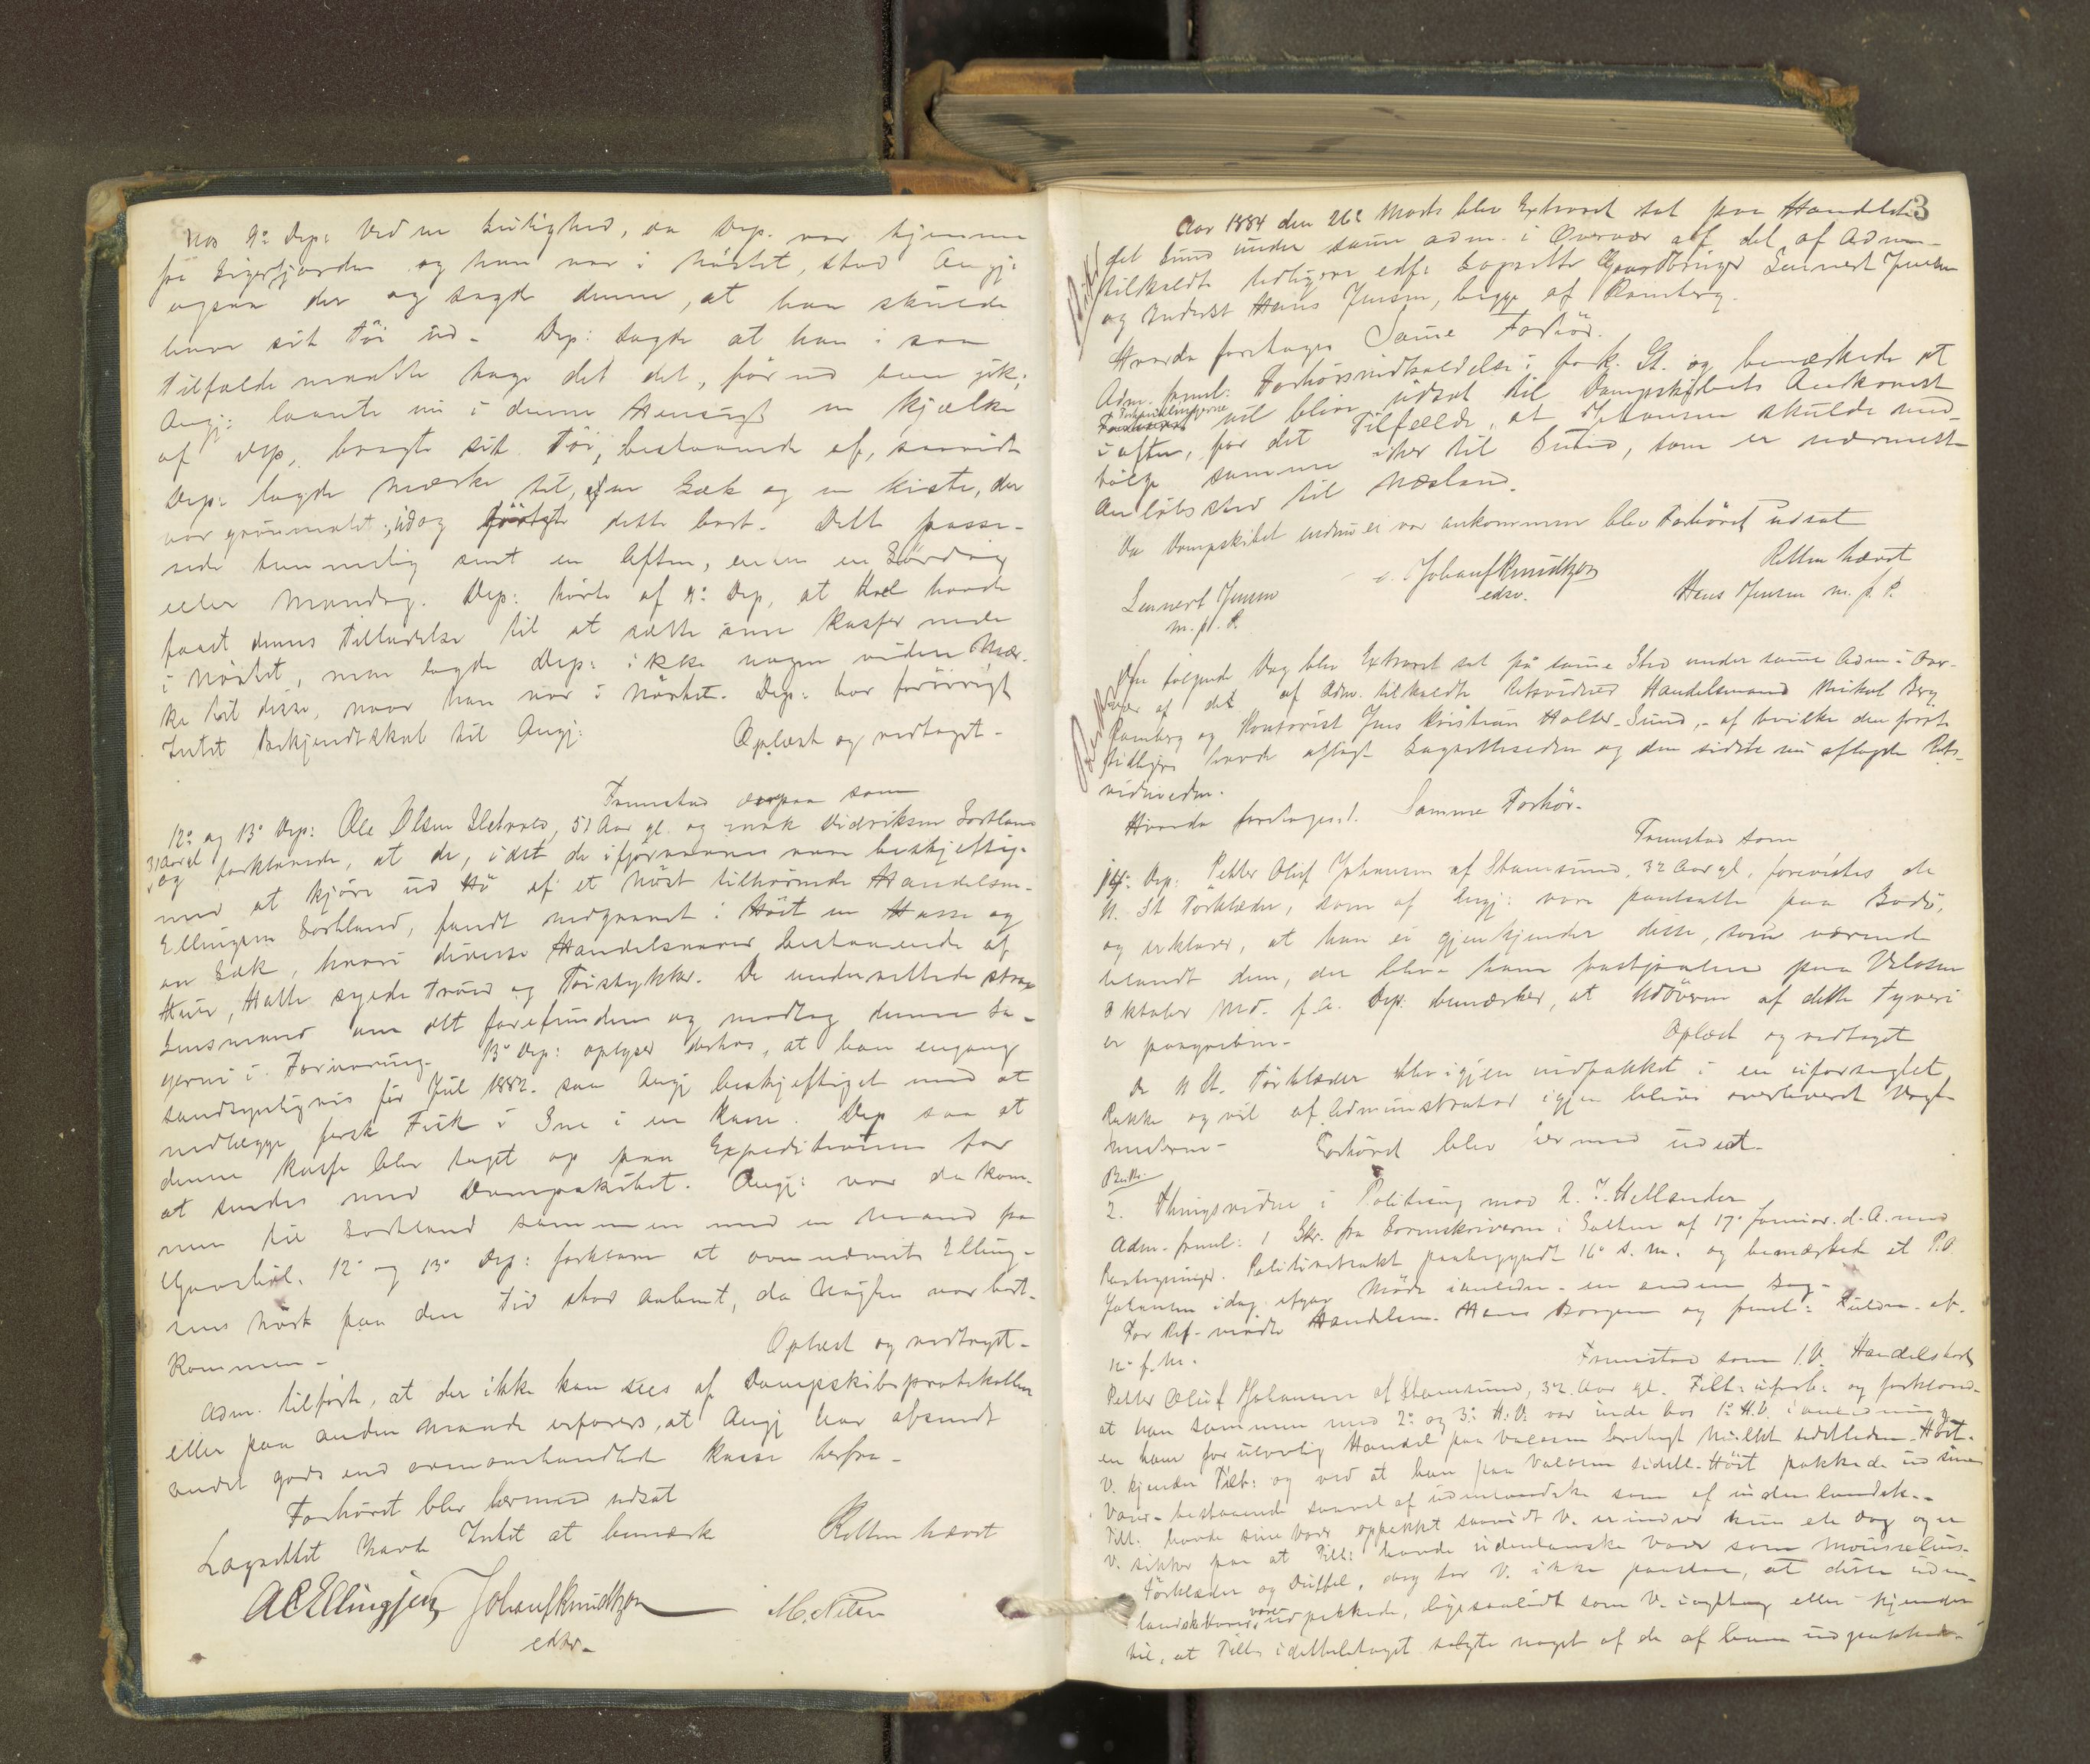 hos 9de Dep: Ved en Leilighed, da Dep. var hjemme
på Sigerfjorden og han var i Nøstet, stod Angj:
ogsaa der og sagde denne, at han skulde
have sit Tøi ud. Dep: sagde at han i saa
Tilfælde maatte tage det det, før ud han gik;
Angj: laante nu i denne Hensigt en Kjælke
af Dep, bragte sit Tøi, bestaaende af, saavidt
Dep: lagde Mærke til, af en Sæk og en Kiste, der
var grønmalet, idag dette bort. Dette passe-
rede temmelig sent en Aften, enten en Lørdag
eller Mandag. Dep: hørte af 9de Dep, at Karl havde
faaet dennes Tilladelse til at sætte sine Kasser nede
i Nøstet, men lagde Dep: ikke nogen videre Mær-
ke til disse, naar han var i Nøstet. Dep: har forøvrigt
Intet Bekjendtskab til Angj:
Oplæst og vedtaget.
Fremstod derpaa som
12de og 13de Dep: Ole Olsen 51 Aar gl. og Didriksen Sortland
31 Aar gl
og forklarede, at de, idet de ifjor vare beskjeftige
med at kjøre ud Hø af et Nøst tilhørende Handelsm.
Ellingsen Sortland, fandt nedgravet i Høet en Kasse og
en Sæk, hvori diverse Handelsvarer bestaaende af
Huer, Hatte syede Trøier og Tøistykker. De underrettede strax
Lensmand om det forefundne og modtog denne Sa-
gerne i Forvaring. 13de Dep: oplyser derhos, at han engang
sandsynligvis før Jul 1882 saa Angj beskjeftiget med at
nedlægge fersk Fisk i Sne i en Kasse. Dep saa at
denne Kasse blev taget op paa Expeditionen for
at sendes med Dampskibet. Angj: var da kom-
men til Sortland sammen med en Mand fra
12te og 13de Dep: forklare at ovennævnte Elling-
sens Nøst paa den Tid stod aabent, da Nøglen var bort-
kommen.
Oplæst og vedtaget.
Adm. tilførte, at der ikke kan sees af Dampskibsprotokollen
eller paa anden Maade erfares, at Angj har afsendt
andet gods end ovenomhandlede Kasse herfra.
Forhøret blev hermed udsat
Lagrettet havde Intet at bemærke
Retten hævet
A C Ellingsen Johan Knudtzon
edsv.
M. Nilsen
3
Aar 1884 den 26de Marts blev Extraret sat paa Handelste-
det Sund under samme adm. i Overvær af det af Adm.
tilkaldte tidligere edf: Lagrette Gaardbruger Lennert Jensen
og Inderst Hans Jensen, begge af Ramberg.
Hvorda foretages Samme Forhør.
Adm. freml: Forhørsindkaldelse i fork. St. og bemærkede at
Forhandlingerne vil blive udsat til Dampskibets Ankomst
i aften, for det Tilfælde, at Johansen skulde med-
følge samme her til Sund, som er nærmeste
Anløbssted til Næsland.
Da Dampskibet endnu ei var ankommen blev Forhøret udsat
Retten hævet
Johan Knudtzon
edsv.
Lennert Jensen
m. p. P.
Hans Jensen m. p. P.
Den følgende Dag blev Extraret sat på samme Sted under samme Adm i Over-
vær af det af Adm. tilkaldte Retsvidner Handelsmand Mikal Berg
Ramberg og Kontorist Jens Kristian Holter Sund, af hvilke den første
tidligere havde aflagt Lagretteseden og den sidste nu aflagde Rets-
vidneeden.
Hvorda foretages: 1. Samme Forhør.
Fremstod som
14de Dep: Petter Oluf Johansen af Stamsund, 32 Aar gl, forevistes de
N. St Tørklæder, som af Angj: vare pantsatte paa Bodø,
og erklærer, at han ei gjenkjender disse, som værende
blandt dem, der blev ham frastjaalne paa
Oktober Md. f. A. Dep. bemærker, at Udøveren af dette Tyveri
er paagreben.
Oplæst og vedtaget
De N St. Tørklæder blev igjen indpakket i en uforseglet
Pakke og vil af Administrator igjen blive overleveret Vagt-
mesteren. Forhøret blev hermed udsat.
2. Thingsvidne i Politisag mod Hellander
Adm. freml: 1 Skr. fra Sorenskriveren i Salten af 17de Januar d. A. med
Paategninger. Politiretsakt paabegyndt 16de d. M. og bemærkede at P.O.
Johansen idag afgav Møde i anledn. en anden Sag.
For Ref. mødte Handelsm. Hans Borgen og freml: Fuldm. af
12 f. M.
Fremstod som 1. V. Handelskarl
Petter Oluf Johansen af Stamsund, 32 Aar gl. Tilt: ubesl: og forklarede
at han sammen med 2de og 3de H. V. var inde hos 1ste H. V. i anledning
en ham for ulovlig Handel paa ilagt Mulkt sidstleden Høst.
V. kjender Tilt: og ved at han paa sidstl. Høst pakkede ud sine
Varer bestaaende saavel af udenlandske som af indenlandske.
Tilt. havde sine Varer oppakket saavidt V. erindrer kun ete Dag og er
V. sikker paa at Tilt: havde udenlanske Varer som Mousselins-
Tørklæder og Düffel, dog tør V. ikke paastaa, at disse uden-
landske Varer vare udpakkede, ligesaalidt som V. iagttog eller kjender
til, at Tilt. idetheletaget solgte noget af de af ham udpakkede